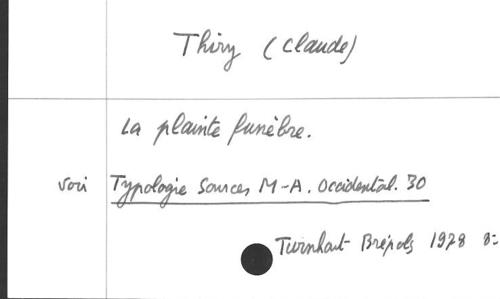 Thiry (Claude)
La plainte funèbre.
voir Typologie Sources M-A. Occidental. 30
Turnhout Brépols 1978 8=